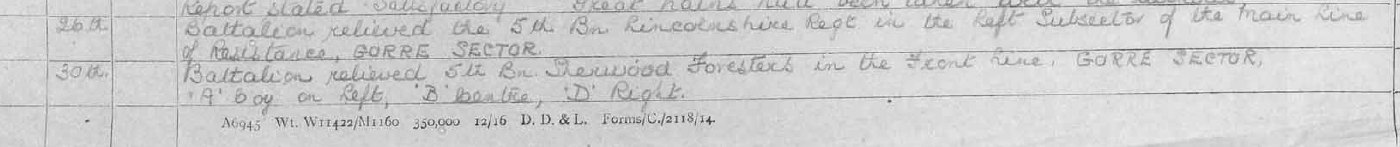 Report stated satisfactory Great pains had been taken with the
26th Battalion relieved the 5th Bn. Lincolnshire Regt in the Left Subsector of the Main Line
of Resistance, GORRE SECTOR.
30th. Battalion relieved 5th Bn. Sherwood Foresters in the Front Line, GORRE SECTOR,
'A' Coy on Left, 'B' Centre, 'D' Right.
A6945 Wt. W11422/M1160 350,000 12/16 D. D. & L. Forms/C./2118/14.